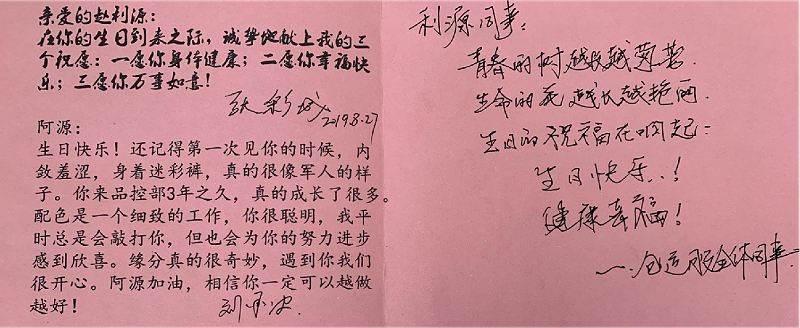 亲爱的赵利源：
在你的生日到来之际，诚挚地献上我的三
个祝愿：一愿你身体健康；二愿你幸福快
乐；三愿你万事如意！
2019.8.27
阿源：
生日快乐！还记得第一次见你的时候，内
敛羞涩，身着迷彩裤，真的很像军人的样
子。你来品控部3年之久，真的成长了很多。
配色是一个细致的工作，你很聪明，我平
时总是会敲打你，但也会为你的努力进步
感到欣喜。缘分真的很奇妙，遇到你我们
很开心。阿源加油，相信你一定可以越做
越好！
利源同事：
青春的树越长越
生命的花越长越艳丽
生日的祝福在响起：
生日快乐！
健康幸福！
全体同事